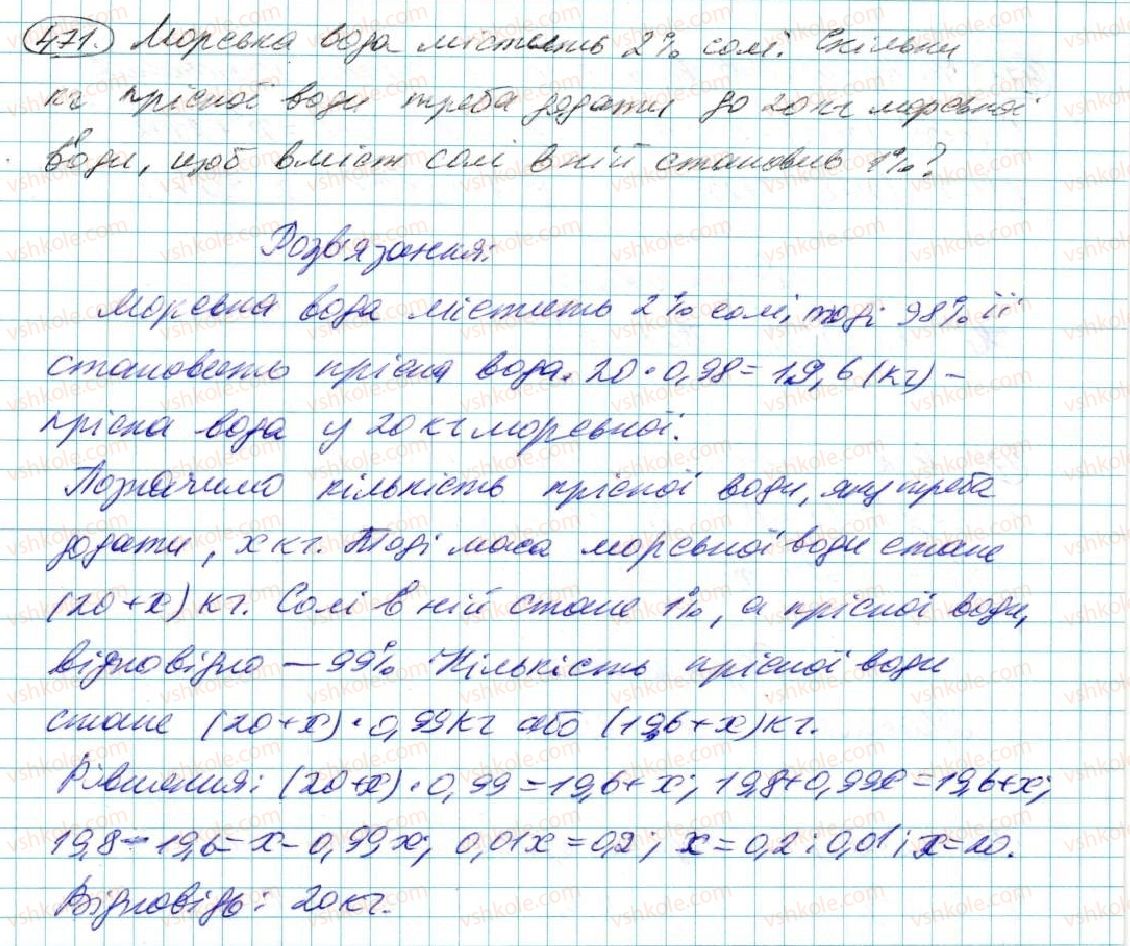 471. Морська вода містить 2% солі. Скільки
кг прісної води треба додати до 20 кг морської
води, щоб вміст солі в ній становив 1%?
Розв'язання:
Морська вода містить 2% солі, тоді 98% її
становить прісна вода. 20 · 0,98 = 19,6 (кг) –
прісна вода у 20 кг морської.
Позначимо кількість прісної води, яку треба
додати, x кг. Тоді маса морської води стане
(20+x) кг. Солі в ній стане 1%, а прісної води,
відповідно – 99%. Кількість прісної води
стане (20+x) · 0,99 кг або (19,6+x) кг.
Рівняння: (20+x) · 0,99 = 19,6 + x; 19,8 + 0,99x = 19,6 + x;
19,8 – 19,6 = x – 0,99x; 0,01x = 0,2; x = 0,2 : 0,01; x = 20.
Відповідь: 20 кг.